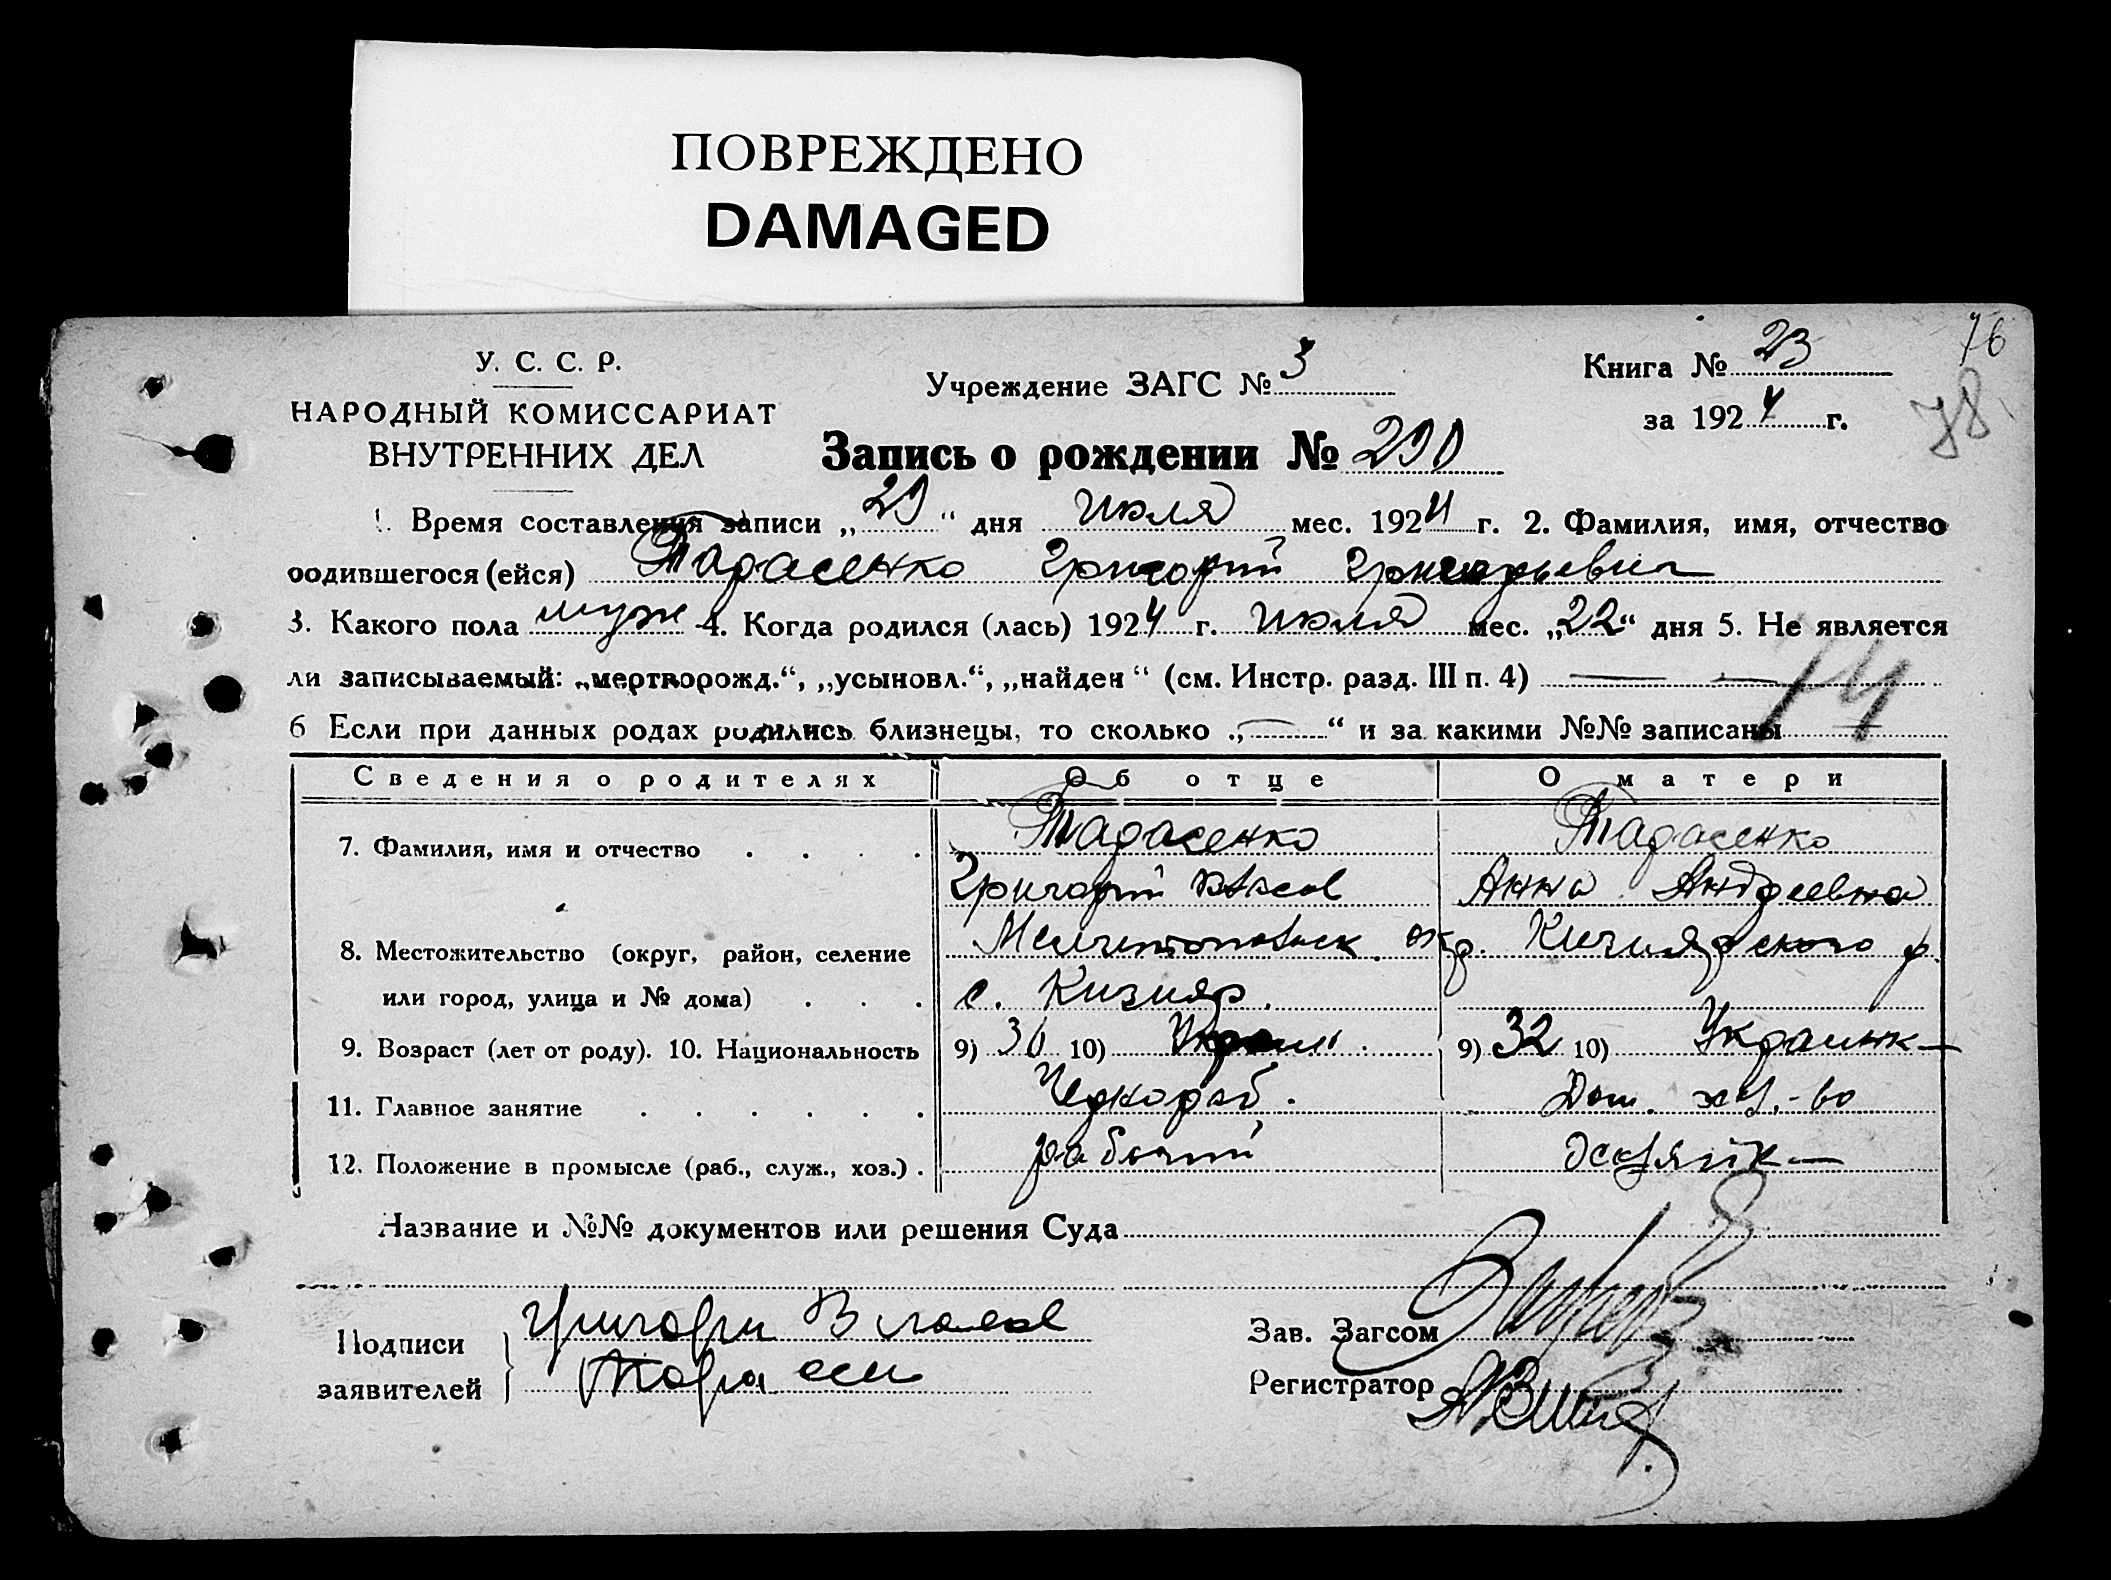 ПОВРЕЖДЕНО
DAMAGED
76
78
У. С. С. Р.
НАРОДНЫЙ КОМИССАРИАТ
ВНУТРЕННИХ ДЕЛ
Учреждение ЗАГС № 3
Книга № 23
за 1924 г.
Запись о рождении № 290
1. Время составления записи „29“ дня июля мес. 1924 г. 2. Фамилия, имя, отчество
родившегося (ейся) Тарасенко Григорий Григорьевич
3. Какого пола муж 4. Когда родился (лась) 1924 г. июля мес. „22“ дня 5. Не является
ли записываемый: „мертворожд.“, „усыновл.“, „найден“ (см. Инстр. разд. III п. 4) — —
74
6 Если при данных родах родились близнецы, то сколько „—“ и за какими №№ записаны
Сведения о родителях Об отце О матери
7. Фамилия, имя и отчество Тарасенко Тарасенко
Григорий Власов Анна Андреевна
8. Местожительство (округ, район, селение Мелитопольск окр. Кизиярского р.
или город, улица и № дома) с. Кизияр.
9. Возраст (лет от роду). 10. Национальность 9) 10) Украин. 9) 32 10) Украинк—
11. Главное занятие Чернораб. Дом. хоз.-во
12. Положение в промысле (раб., служ., хоз.) рабочий хозяйк—
Название и №№ документов или решения Суда
Подписи
заявителей
Григори
Зав. Загсом
Регистратор